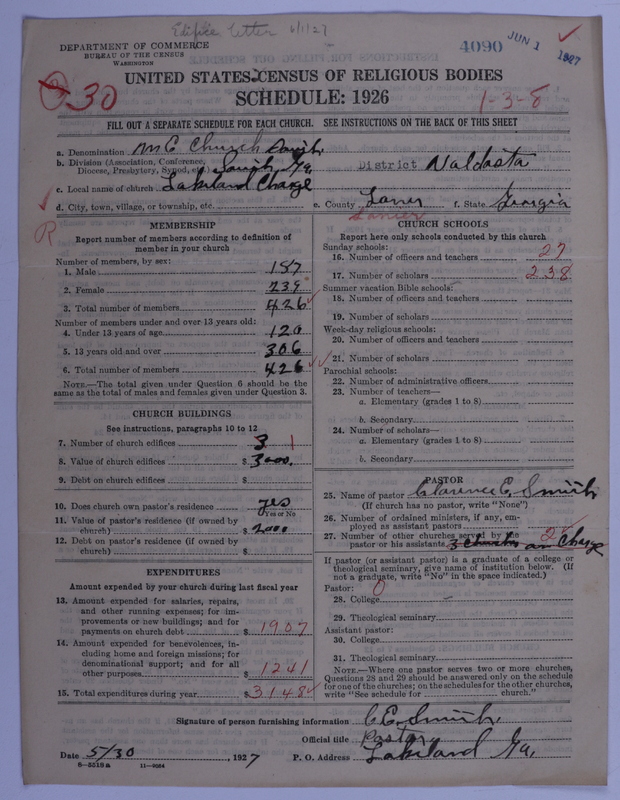 Edifice letter 6/1/27
DEPARTMENT OF COMMERCE
BUREAU OF THE CENSUS
WASHINGTON
4090 JUN 1 1927
30
UNITED STATES CENSUS OF RELIGIOUS BODIES
SCHEDULE: 1926
1-3-8
FILL OUT A SEPARATE SCHEDULE FOR EACH CHURCH. SEE INSTRUCTIONS ON THE BACK OF THIS SHEET
a. Denomination M E Church South
b. Division (Association, Conference, Diocese, Presbytery, Synod, etc.) South Ga. District Valdosta
c. Local name of church Lakeland Charge
d. City, town, village, or township, etc. e. County Lanier f. State Georgia
Lanier
R
MEMBERSHIP
Report number of members according to definition of
member in your church
Number of members, by sex:
1. Male 187
2. Female 239
3. Total number of members 426
Number of members under and over 13 years old:
4. Under 13 years of age 120
5. 13 years old and over 306
6. Total number of members 426
NOTE.—The total given under Question 6 should be the
same as the total of males and females given under Question 3.
CHURCH BUILDINGS
See instructions, paragraphs 10 to 12
7. Number of church edifices 3 1
8. Value of church edifices $ 3000.
9. Debt on church edifices $
10. Does church own pastor's residence yes
Yes or No
11. Value of pastor's residence (if owned by
church) $ 2000
12. Debt on pastor's residence (if owned by
church) $
EXPENDITURES
Amount expended by your church during last fiscal year
13. Amount expended for salaries, repairs,
and other running expenses; for im-
provements or new buildings; and for
payments on church debt $ 1907
14. Amount expended for benevolences, in-
cluding home and foreign missions; for
denominational support; and for all
other purposes $ 1241
15. Total expenditures during year $ 3148
CHURCH SCHOOLS
Report here only schools conducted by this church
Sunday schools:
16. Number of officers and teachers 27
17. Number of scholars 238
Summer vacation Bible schools:
18. Number of officers and teachers
19. Number of scholars
Week-day religious schools:
20. Number of officers and teachers
21. Number of scholars
Parochial schools:
22. Number of administrative officers
23. Number of teachers—
a. Elementary (grades 1 to 8)
b. Secondary
24. Number of scholars—
a. Elementary (grades 1 to 8)
b. Secondary
PASTOR
25. Name of pastor Clarence E. Smith
(If church has no pastor, write "None")
26. Number of ordained ministers, if any, em-
ployed as assistant pastors
27. Number of other churches served by the 2
pastor or his assistants 3 Churches on Charge
If pastor (or assistant pastor) is a graduate of a college or
theological seminary, give name of institution below. (If
not a graduate, write "No" in the space indicated.)
Pastor: 0
28. College
29. Theological seminary
Assistant pastor:
30. College
31. Theological seminary
NOTE.—Where one pastor serves two or more churches,
Questions 28 and 29 should be answered only on the schedule
for one of the churches; on the schedules for the other churches,
write "See schedule for church."
Signature of person furnishing information C E Smith
Official title Pastor
Date 5/30, 1927 P. O. Address Lakeland Ga.
8—5519a 11—9084